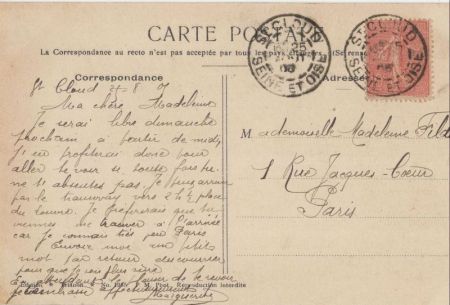 CARTE POSTALE
La Correspondance au recto n'est pas acceptée par tous les pays étrangers. (Se rens
Correspondance
Adresse
St CLOUD
SEINE ET OISE
St CLOUD
SEINE ET OISE
St Cloud 2-8
Ma chère Madeleine
Je serai libre dimanche
prochain à partir de midi,
J'en profiterai donc pour
aller te voir si toute fois tu
ne t'absentes pas. Je pense arriver
par le tramway vers 2h ½ place
du Louvre. Je préférerais que tu
viennes me trouver à l'arrivée
car je connais très peu Paris
Envoie moi un petit
mot par retour du courrier
pour que je sois plus sûre
En attendant le plaisir de te revoir
Marguerite
Mademoiselle Madeleine
1 Rue Jacques-Cœur
Paris
Reproduction interdite